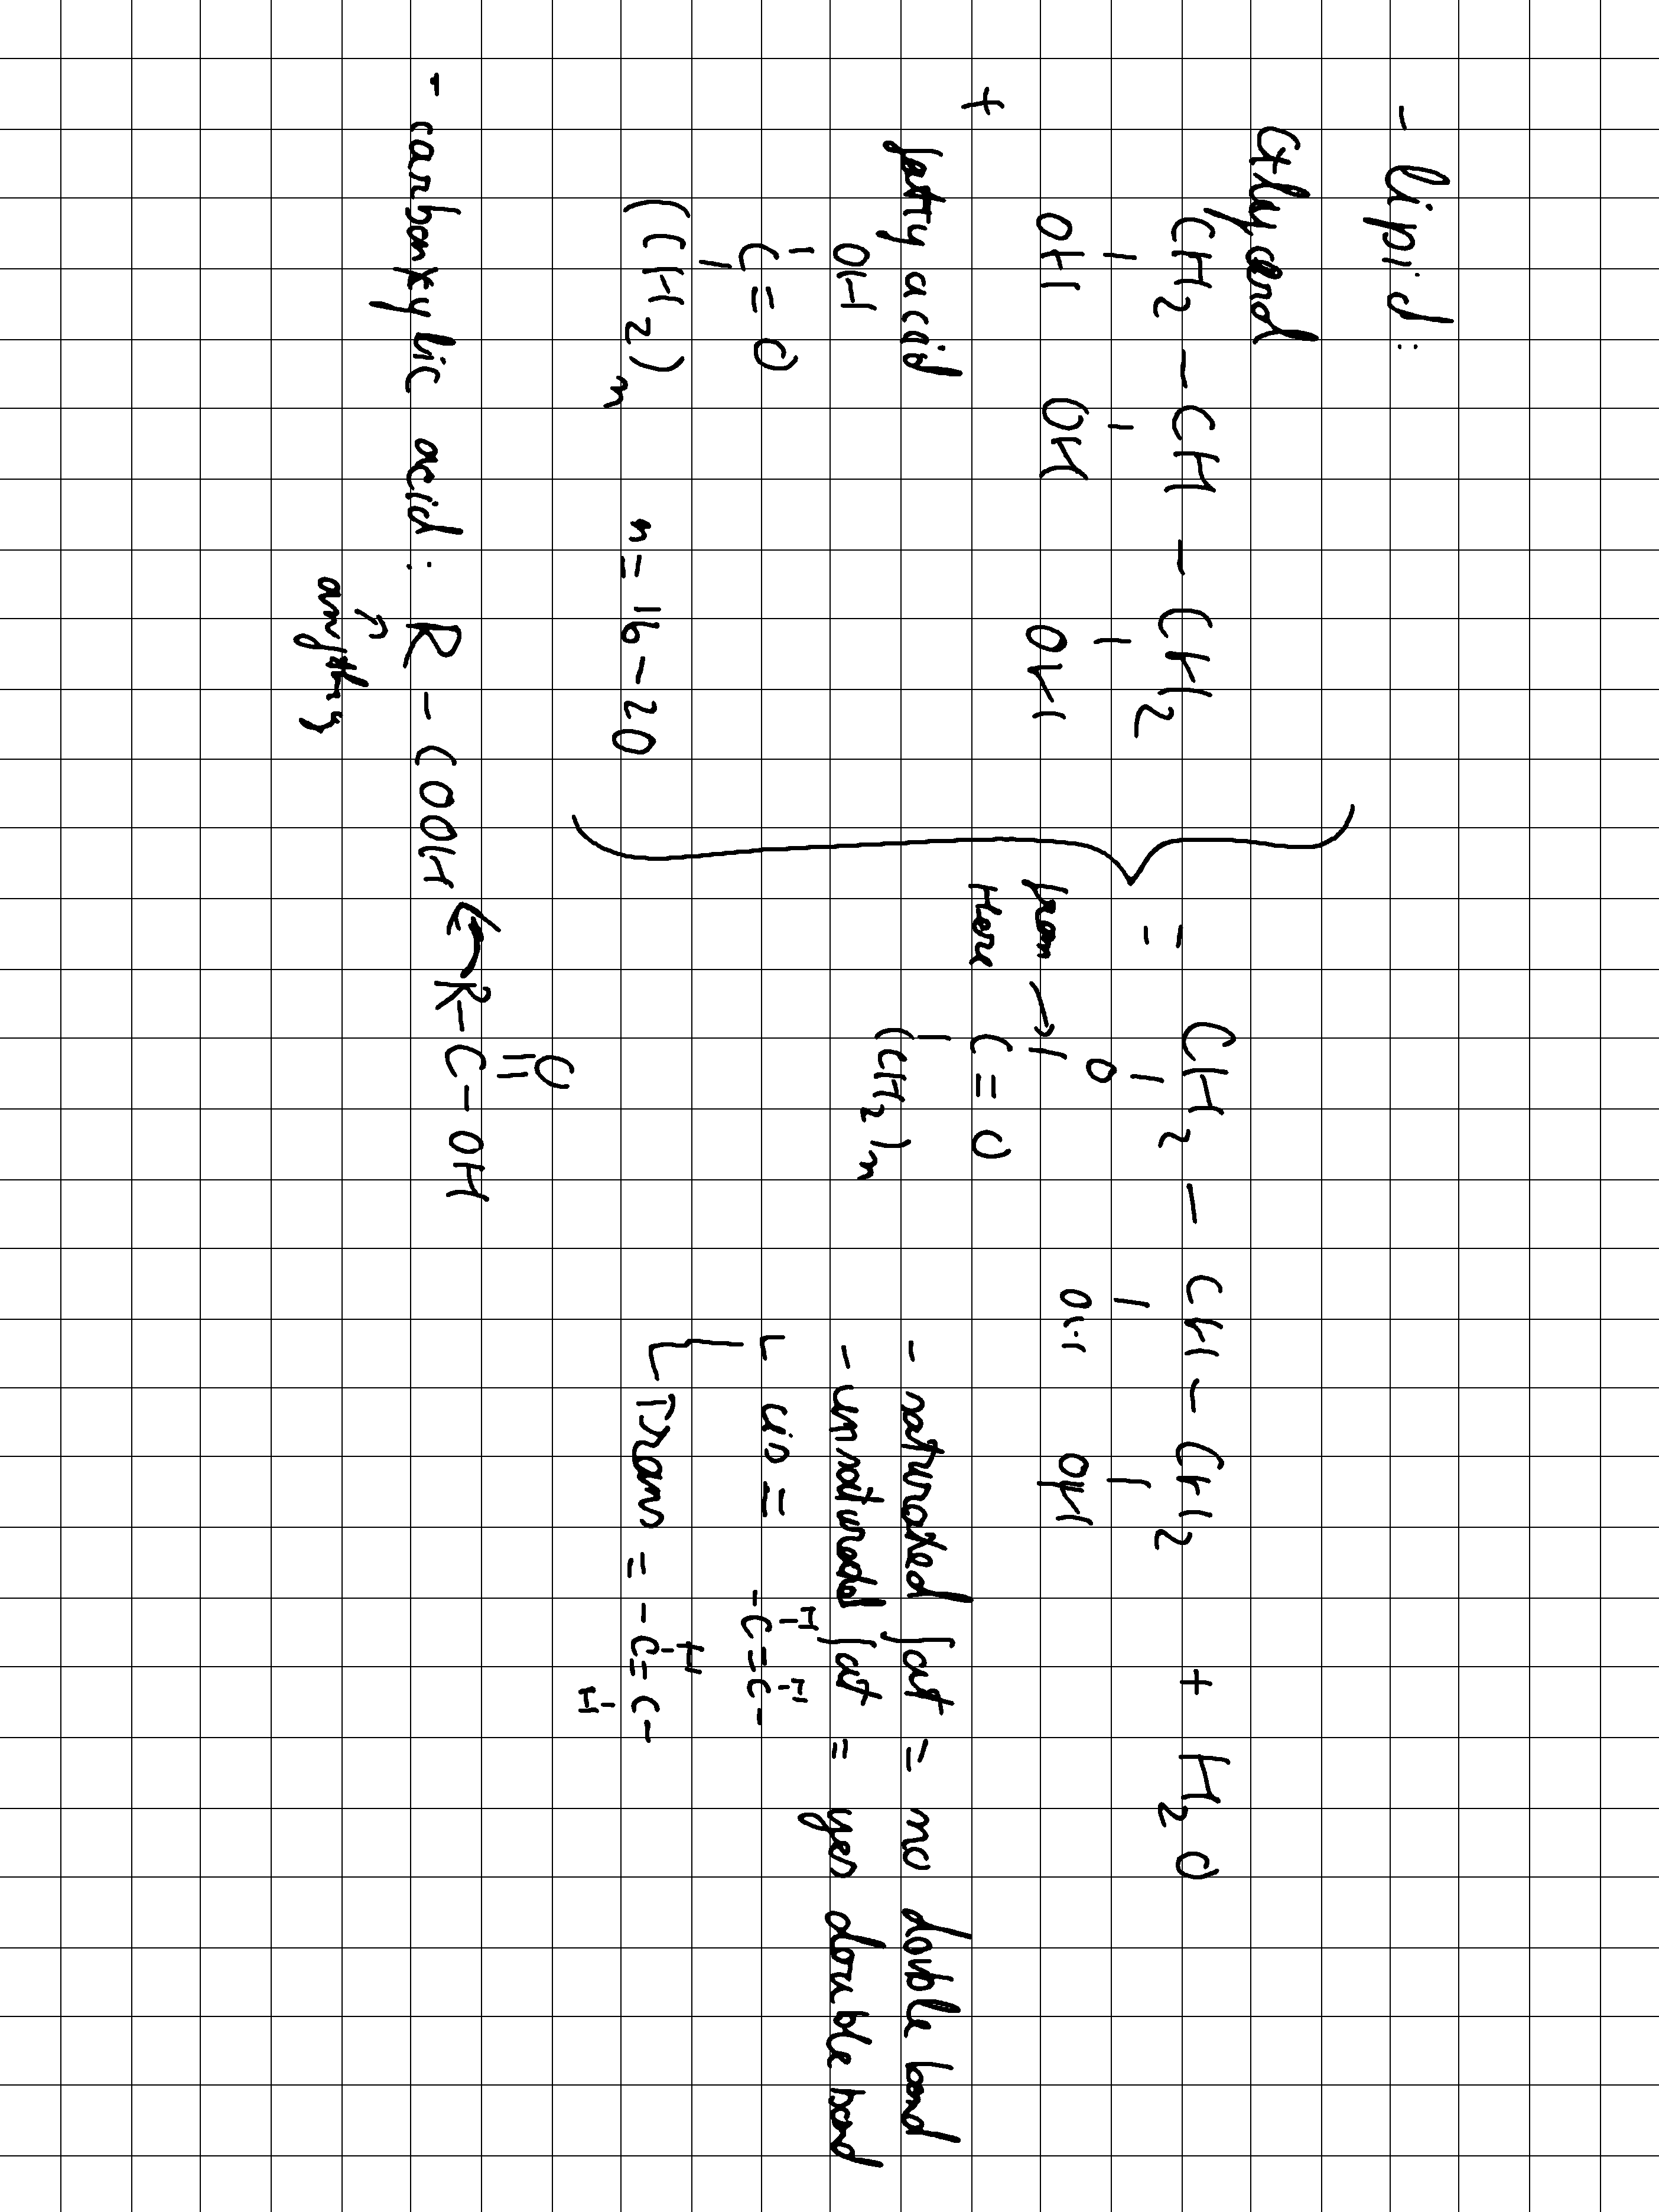 - lipid:
Glycerol
CH2 - CH - CH2
OH OH OH
+
fatty acid
OH
C = O
(CH2)n n = 16 - 20
= CH2 - CH - CH2 + H2O
O OH OH
from
Here →
C = O
(CH2)n
- saturated fat = no double bond
- unsaturated fat = yes double bond
H H
cis = -C=C-
H
Trans = -C=C-
H
O
- carboxylic acid : R - COOH ← R - C - OH
↑
anything